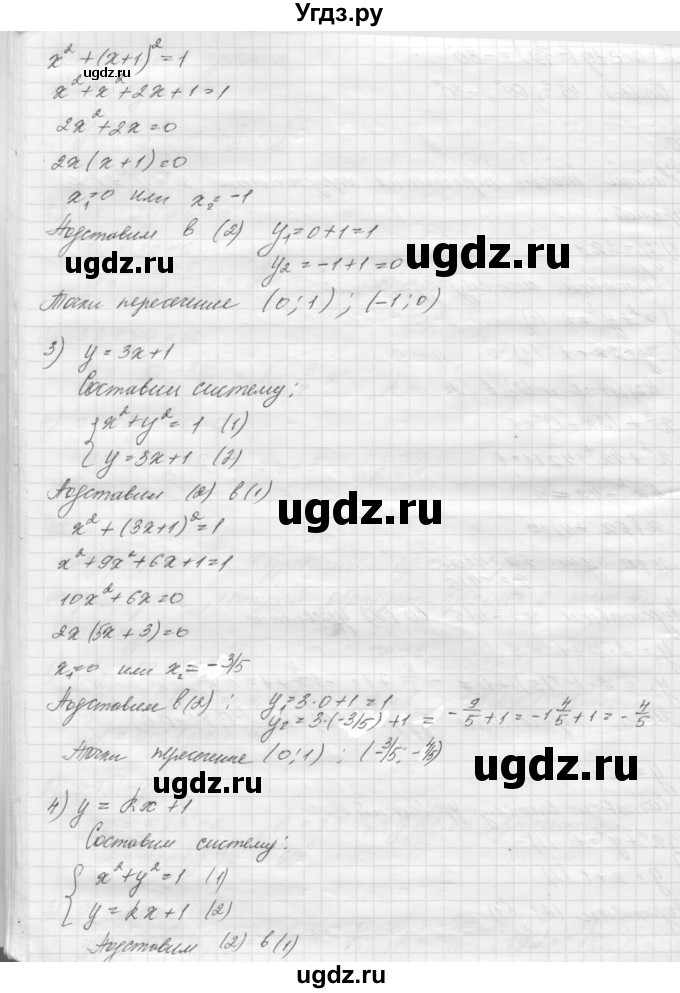 Угдз.ру
x² + (x+1)² = 1
ugdz.ru
x² + x² + 2x + 1 = 1
ugdz.ru
2x² + 2x = 0
2x(x+1) = 0
x₁=0 или x₂ = -1
Подставим в (2) y₁ = 0+1 = 1
ugdz.ru
ugdz.ru
y₂ = -1+1 = 0
Точки пересечение (0;1) ; (-1;0)
3) y = 3x+1
Составим систему:
{ x² + y² = 1 (1)
ugdz.ru
y = 3x+1 (2)
Подставим (2) в (1)
ugdz.ru
x² + (3x+1)² = 1
x² + 9x² + 6x + 1 = 1
10x² + 6x = 0
2x(5x+3) = 0
x₁=0 или x₂ = -3/5
ugdz.ru
Подставим в (2) : y₁ = 3·0+1 = 1
y₂ = 3·(-3/5)+1 = -9/5+1 = -1 4/5+1 = -4/5
Точки пересечение (0;1) ; (-3/5; -4/5)
ugdz.ru
4) y = kx+1
ugdz.ru
Составим систему:
{ x² + y² = 1 (1)
ugdz.ru
y = kx+1 (2)
Подставим (2) в (1)
ugdz.ru